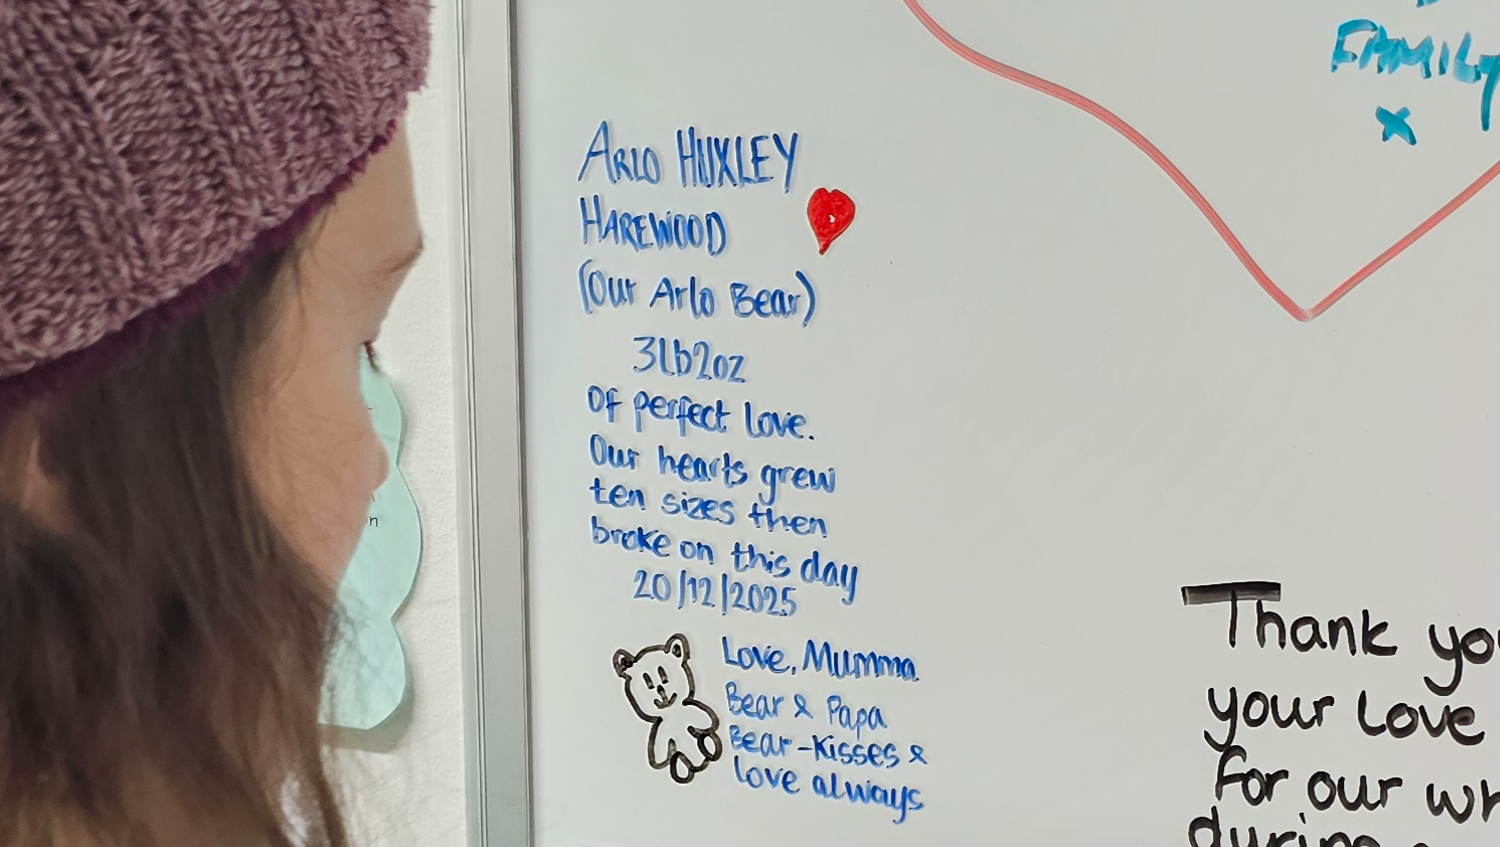 FAMILY
x
ARLO HUXLEY
HAREWOOD
(Our Arlo Bear)
3lb2oz
Of perfect love.
Our hearts grew
ten sizes then
broke on this day
20/12/2025
Love, Mumma
Bear & Papa
Bear-Kisses &
love always
n
Thank
your love
for our